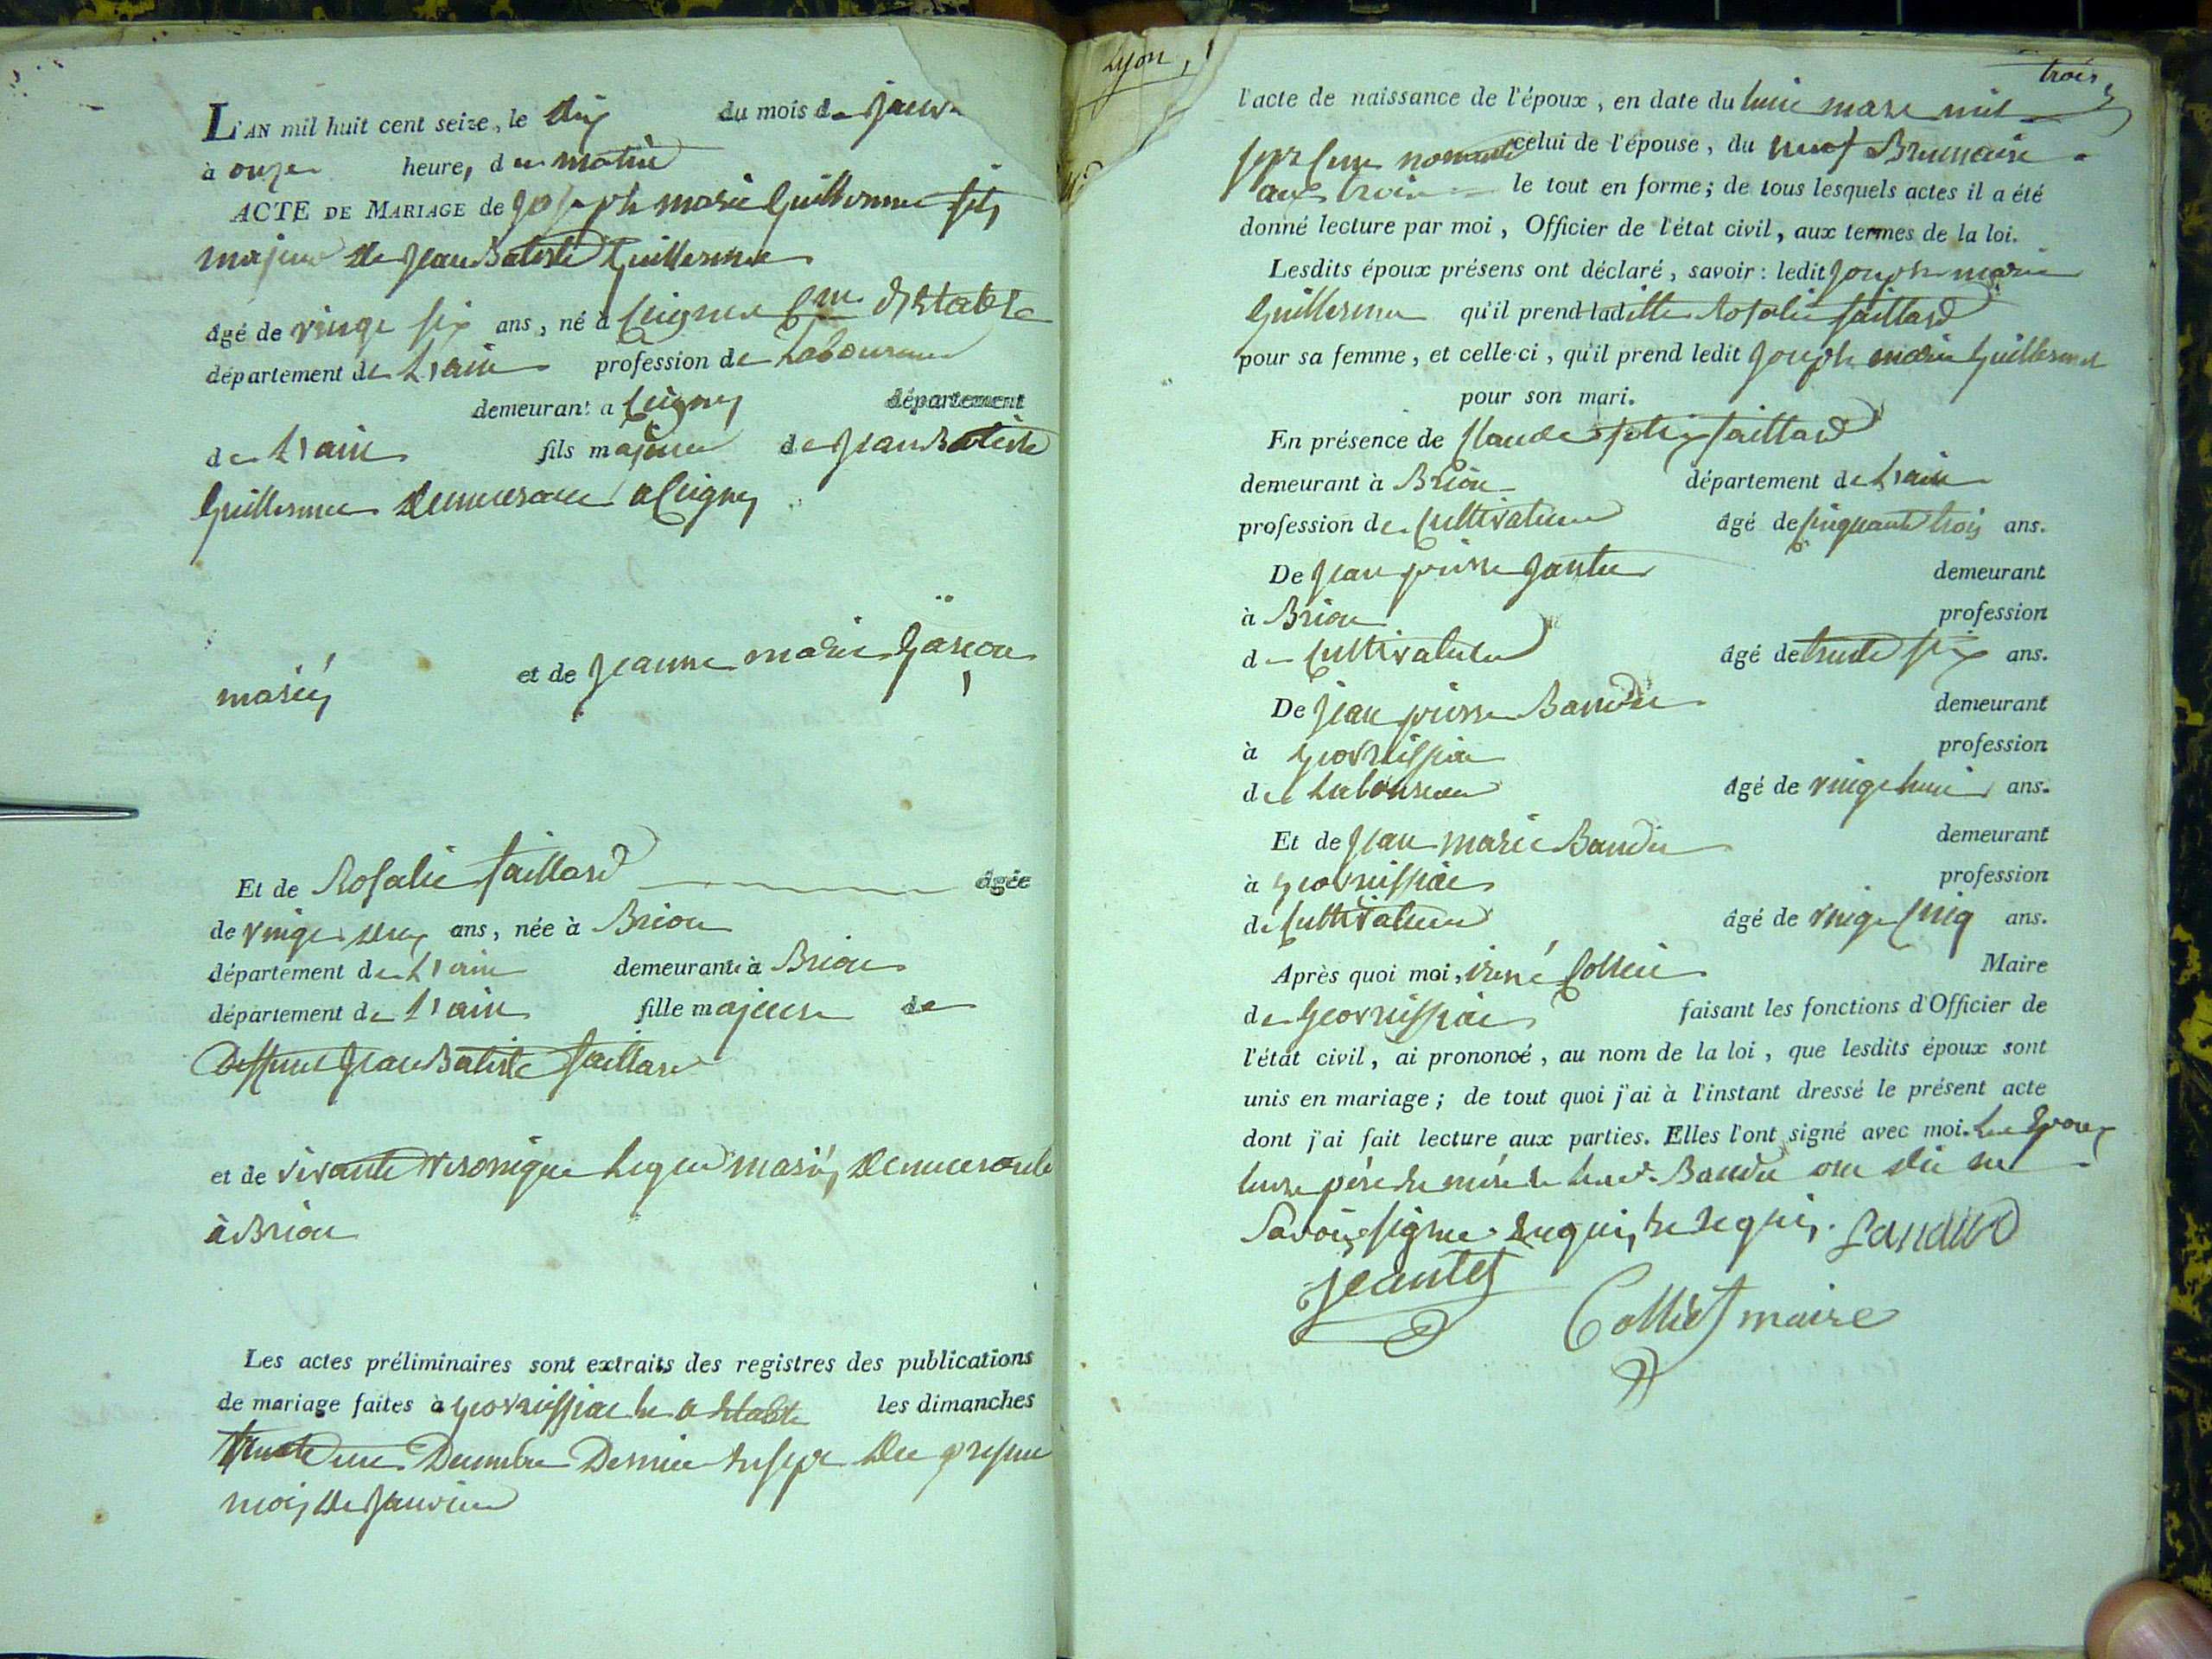 L'AN mil huit cent seize, le dix du mois de Janv
à onze heure, du matin
ACTE DE MARIAGE de Joseph marie Guillermet fils
majeur de Jean Batiste Guillermet
âgé de vingt six ans, né à Ceignes Cne d'Etable
département de L'ain profession de Laboureur
demeurant a Ceignes département
de L'ain fils majeur de Jean Batiste
Guillermet demeurant a Ceignes
et de Jeanne marie
mariés
Et de Rosalie faillard âgée
de vingt deux ans, née à Brion
département de L'ain demeurante à Brion
département de L'ain fille majeure de
Deffunt Jean Batiste faillard
et de vivante veronique mariés demeurante
à Brion
Les actes préliminaires sont extraits des registres des publications
de mariage faites à Geovreissiat et a Etable les dimanches
trente une Decembre Dernier et sept du present
mois de Janvier
Lyon,
trois
l'acte de naissance de l'époux, en date du huit mars mil
sept cent nonante celui de l'épouse, du neuf Brumaire
an trois le tout en forme; de tous lesquels actes il a été
donné lecture par moi, Officier de l'état civil, aux termes de la loi.
Lesdits époux présens ont déclaré, savoir: ledit Joseph marie
Guillermet qu'il prend laditte Rosalie faillard
pour sa femme, et celle-ci, qu'il prend ledit Joseph marie Guillermet
pour son mari.
En présence de Claude felix faillard
demeurant à Brion département de L'ain
profession de Cultivateur âgé de cinquante trois ans.
De Jean pierre Jantet demeurant
à Brion profession
de Cultivateur âgé de trente six ans.
De Jean pierre Baudu demeurant
à Geovreissiat profession
de Laboureur âgé de vingt huit ans.
Et de Jean marie Baudu demeurant
à Geovreissiat profession
de Cultivateur âgé de vingt cinq ans.
Après quoi moi, réné Colliet Maire
de Geovreissiat faisant les fonctions d'Officier de
l'état civil, ai prononcé, au nom de la loi, que lesdits époux sont
unis en mariage; de tout quoi j'ai à l'instant dressé le présent acte
dont j'ai fait lecture aux parties. Elles l'ont signé avec moi. Les Epoux
leurs père et mère et Baudu ont dit ne
Savoir signer Enquis et requis.
Jeantet
Colliet maire